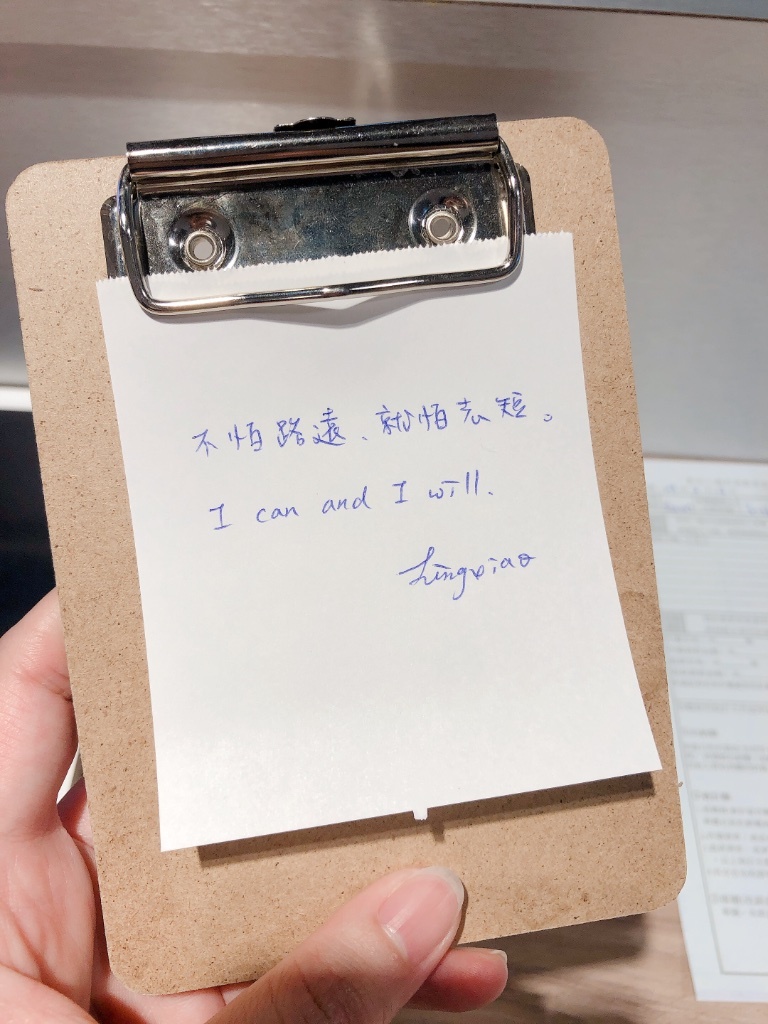 不怕路遠、就怕志短。
I can and I will.
Lingxiao